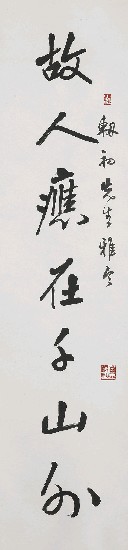 故人應在千山外
初先生雅令